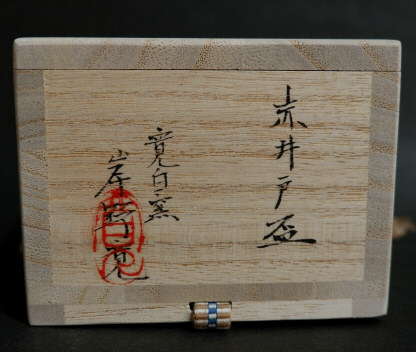 赤井戸盃
寛白窯
岸野寛